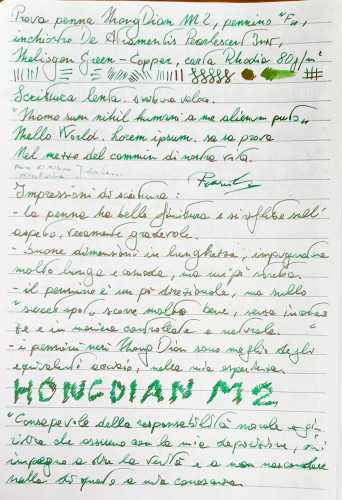 Prova penna HongDian M2, pennino "F",
inchiostro De Atramentis Pearlescent Ink,
Heliogen Green - Copper, carta Rhodia 80g/m²
Scrittura lenta. scrittura veloce.
"Homo sum nihil humani a me alienum puto"
Hello World. Lorem ipsum. sa sa prova
Nel mezzo del cammin di nostra vita.
Impressioni di scrittura:
- la penna ha bella finitura e si riflette sull'
aspetto, veramente gradevole.
- buone dimensioni in lunghezza, impugnatura
molto lunga e comoda, ma un pò
- il pennino è un pò direzionale, ma sullo
"sweet spot" scorre molto bene, senza incertez
ze e in maniera controllata e naturale.
- i pennini neri HongDian sono meglio degli
equivalenti acciaio, nella mia esperienza.
HONGDIAN M2
"Consapevole della responsabilità morale e giu
ridica che assumo con la mia deposizione, mi
impegno a dire la verità e a non nascondere
nulla di quanto a mia conoscenza.